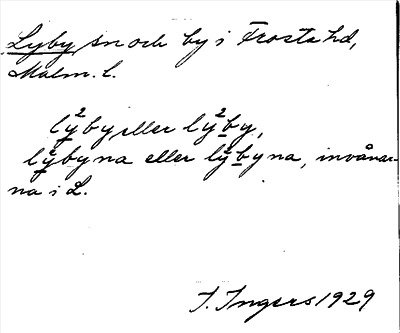 Lyby sn och by i Frosta hd,
Malm. l.
lý²by eller lý²by,
lý²byna eller lý²byna, invånar-
na i L.
I. Ingers 1929